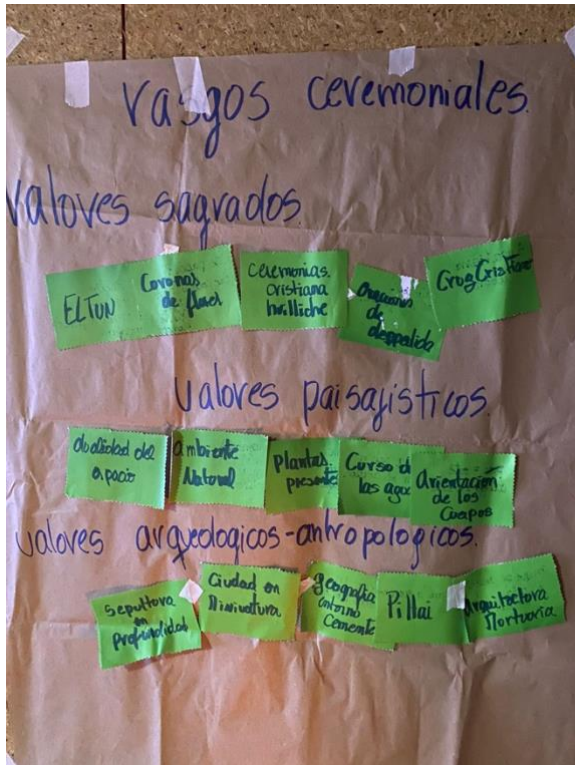 rasgos ceremoniales.
valores sagrados.
ELTUN
Coronas
de flores
Ceremonias.
cristiana
huilliche
Oraciones
de
despedida
Cruz Cristiana
valores paisajisticos.
dualidad del
espacio
ambiente
Natural
Plantas
presente
Curso d
las agua
Orientación
de los
Cuerpos
valores arqueologicos-antropologicos.
Sepultura
en
Profundidad
Ciudad en
Miniatura
geografia
entorno
Cemente
Pillai
Arquitectura
Mortuoria.